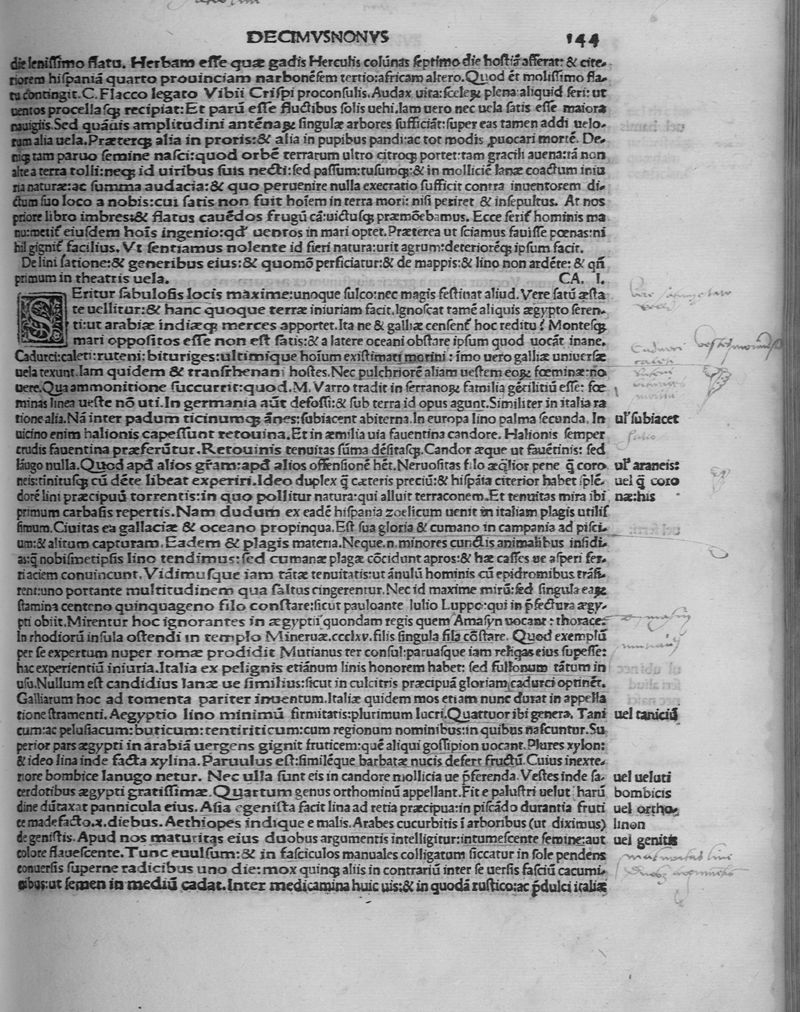 DECIMVSNONVS 144
die lenissimo flatu. Herbam esse quæ gadis Herculis colũnas septimo die hostiã afferat: & cite-
riorem hispaniã quarto prouinciam narbonẽsem tertio: africam altero. Quod ẽt molissimo fla-
tu cõtingit. C. Flacco legato Vibii Crispi proconsulis. Audax uita: scelerꝫ plena: aliquid seri: ut
uentos procellasqꝫ recipiat: Et parũ esse fluctibus solis uehi. Iam uero nec uela satis esse maiora
nauigiis. Sed quãuis amplitudini antẽnarꝫ singulæ arbores sufficiãt: super eas tamen addi uelo-
rum alia uela. Præterqꝫ alia in proris: & alia in pupibus pandi: ac tot modis ꝓuocari mortẽ. De-
niqꝫ tam paruo semine nasci: quod orbẽ terrarum ultro citroqꝫ portet: tam gracili auena: tã non
alte a terra tolli: neqꝫ id uiribus suis necti: sed passum: tusumqꝫ: & in molliciẽ lanæ coactum iniu
ria naturæ: ac summa audacia: & quo peruenire nulla execratio sufficit contra inuentorem di-
ctum suo loco a nobis: cui satis non fuit hoĩem in terra mori: nisi periret & insepultus. At nos
priore libro imbres: & flatus cauẽdos frugũ cã: uictusqꝫ præmõebamus. Ecce serit᷑ hominis ma
nu: metit᷑ eiusdem hoĩs ingenio: qđ uentos in mari optet. Præterea ut sciamus fauisse pœnas: ni
hil gignit᷑ facilius. Vt sentiamus nolente id fieri natura: urit agrum: deteriorẽqꝫ ipsum facit.
De lini satione: & generibus eius: & quomõ perficiatur: & de mappis: & lino non ardẽte: & qñ
primum in theatris uela. CA. I.
SEritur sabulosis locis maxime: unoque sulco: nec magis festinat aliud. Vere satũ æsta
te uellitur: & hanc quoque terræ iniuriam facit. Ignoscat tamẽ aliquis ægypto seren-
ti: ut arabiæ indiæqꝫ merces apportet. Ita ne & galliæ censent᷑ hoc reditu? Montesqꝫ
mari oppositos esse non est satis: & a latere oceani obstare ipsum quod uocãt inane.
Cadurci: caleti: ruteni: bituriges: ultimique hoĩum existimati morini: imo uero galliæ uniuersæ
uela texunt. Iam quidem & transrhenani hostes. Nec pulchriorẽ aliam uestem eorꝫ fœminæ: no
uere. Qua ammonitione succurrit: quod. M. Varro tradit in serranorꝫ familia gẽtilitiũ esse: fœ
minas linea ueste nõ uti. In germania aũt defossi: & sub terra id opus agunt. Similiter in italia ra
tione alia. Nã inter padum ticinumqꝫ ãnes: subiacent abiterna. In europa lino palma secunda. In ulꝰ subiacet
uicino enim halionis capessunt retouina. Et in æmilia uia fauentina candore. Halionis semper
crudis fauentina præferũtur. Retouinis tenuitas sũma dẽsitasqꝫ. Candor æque ut fauẽtinis: sed
lãugo nulla. Quod apđ alios gr̃am: apđ alios offensionẽ hẽt. Neruositas filo æqꝰlior pene q̃ coro ulꝰ araneis:
neis: tinitusqꝫ cũ dẽte libeat experiri. Ideo duplex q̃ cæteris preciũ: & hispãia citerior habet splẽ- uel q̃ coro
dorẽ lini præcipuũ torrentis: in quo pollitur natura: qui alluit terraconem. Et tenuitas mira ibi næ: his
primum carbasis repertis. Nam dudum ex eadẽ hispania zoelicum uenit in italiam plagis utilis
simum. Ciuitas ea gallaciæ & oceano propinqua. Est sua gloria & cumano in campania ad pisci-
um: & alitum capturam. Eadem & plagis materia. Neque. n. minores cunctis animalibus insidi-
as: q̃ nobismetipsis lino tendimus: sed cumanæ plagæ cõcidunt apros: & hæ casses ue asperi fer-
ri aciem conuincunt. Vidimusque iam tãtæ tenuitatis: ut ãnulũ hominis cũ epidromibus trãsi-
rent: uno portante multitudinem qua saltus cingerentur. Nec id maxime mirũ: sed singula earꝫ
stamina centeno quinquageno filo constare: sicut pauloante Iulio Luppo: qui in p̃fectura ægy-
pti obiit. Mirentur hoc ignorantes in ægyptii quondam regis quem Amasyn uocant: thorace.
In rhodiorũ insula ostendi in templo Mineruæ. ccclxv. filis singula fila cõstare. Quod exemplũ
per se expertum nuper romæ prodidit Mutianus ter consul: paruasque iam reliqas eius supesse:
hac experientiũ iniuria. Italia ex pelignis etiãnum linis honorem habet: sed fullonum tãtum in
usu. Nullum est candidius lanæ ue similius: sicut in culcitris præcipuã gloriam cadurci optinẽt.
Galliarum hoc ad tomenta pariter inuentum. Italiæ quidem mos etiam nunc durat in appella
tione stramenti. Aegyptio lino minimũ firmitatis: plurimum lucri. Quattuor ibi genera. Tani uel taniciũ
cum: ac pelusiacum: buticum: tentiriticum: cum regionum nominibus: in quibus nascuntur. Su
perior pars ægypti in arabiã uergens gignit fruticem: quẽ aliqui gossipion uocant. Plures xylon:
& ideo lina inde facta xylina. Paruulus est: similẽque barbatæ nucis defert fructũ. Cuius inexte-
riore bombice lanugo netur. Nec ulla sunt eis in candore mollicia ue p̃ferenda. Vestes inde sa- uel ueluti
cerdotibus ægypti gratissimæ. Quartum genus orthominũ appellant. Fit e palustri uelut harũ bombicis
dine dũtaxat pannicula eius. Asia e genista facit lina ad retia præcipua: in piscãdo durantia fruti uel ortho-
ce madefacto. x. diebus. Aethiopes indique e malis. Arabes cucurbitis ĩ arboribus (ut diximus) linon
de genistis. Apud nos maturitas eius duobus argumentis intelligitur: intumescente semine: aut uel genitis
colore flauescente. Tunc euulsum: & in fasciculos manuales colligatum siccatur in sole pendens
conuersis superne radicibus uno die: mox quinqꝫ aliis in contrariũ inter se uersis fasciũ cacumi-
nibus: ut semen in mediũ cadat. Inter medicamina huic uis: & in quodã rustico: ac p̃dulci italiæ